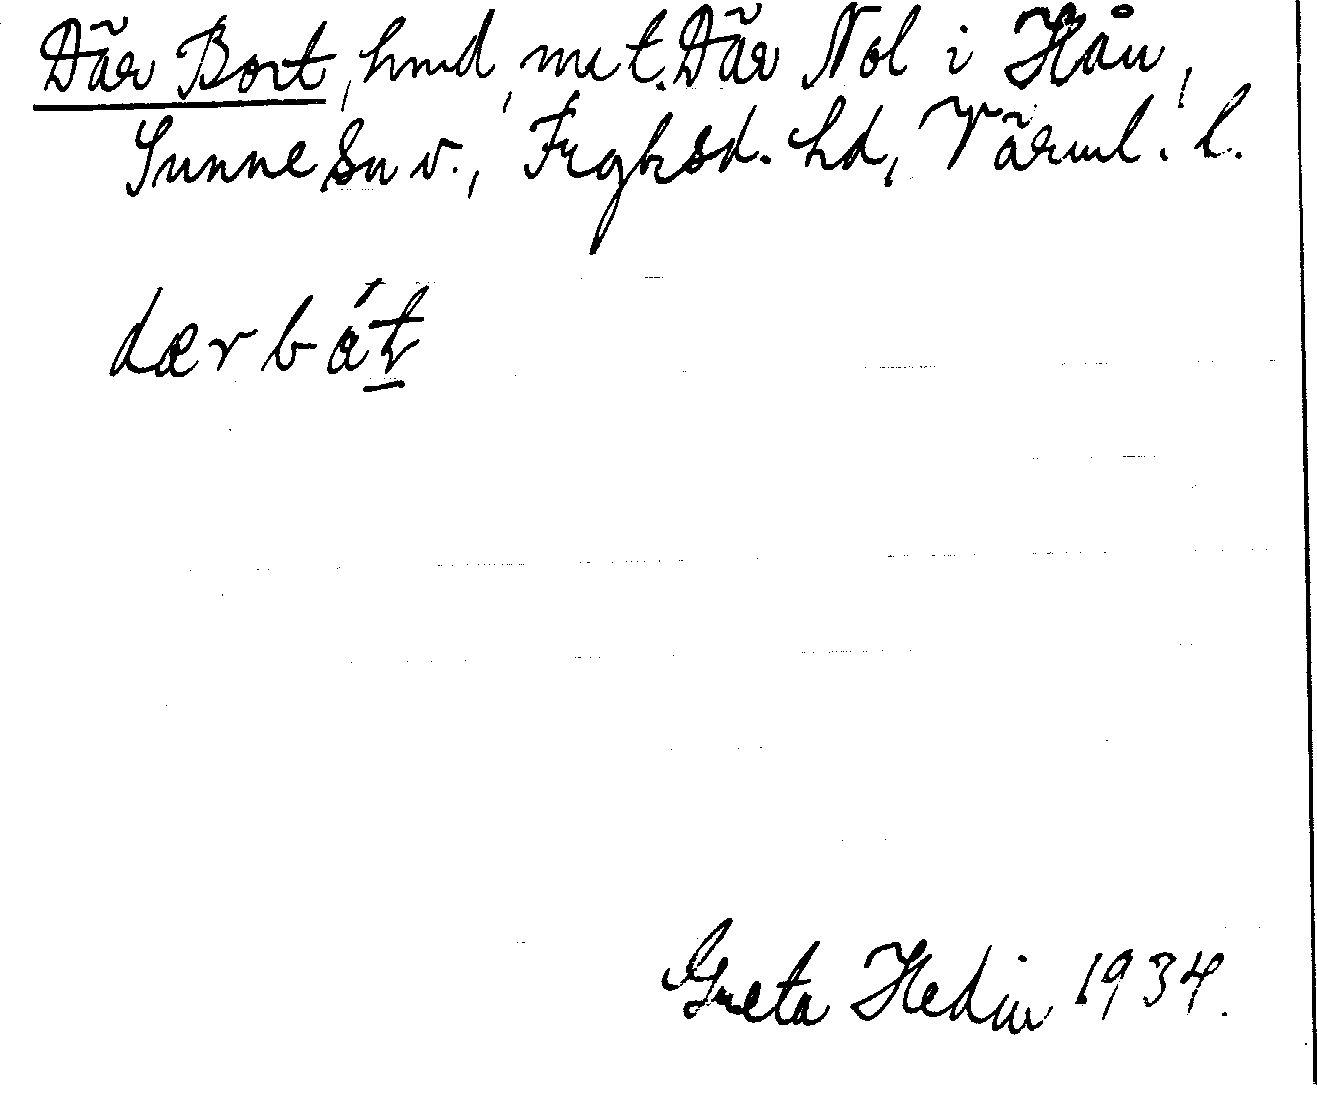 Där Bort, hmd, mot. Där Nol i Hån,
Sunne sn v., Fryksd. hd, Värml. l.
dær bát
Greta Hedin 1934.